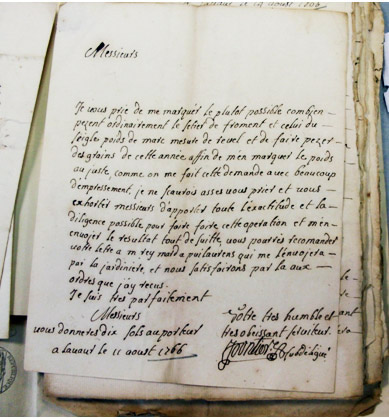 a lavaur le 19 aoust 1766
Messieurs
Je vous prie de me marquer le plutot possible combien
pezent ordinairement le setier de froment et celui du
seigle poids de marc mesure de revel et de faire pezer
des grains de cette année affin de men marquer le poids
au juste, comme on me fait cette demande avec beaucoup
d'empressement, je ne scaurois asses vous prier et vous
exhorter messieurs d'apporter toute l'exactitude et la
diligence possible pour faire faire cette operation et men
envoyer le resultat tout de suitte, vous pourrés recomander
votre letre a m rey maid a puilaurens qui me l'envoyera
par la jardiniere, et nous satisfairons par la aux
ordres que jay recus.
Je suis tres parfaitement
Messieurs
Votre tres humble et
vous donneres dix sols au porteur
tres obeissant serviteur
a lavaur le 11 aoust 1766
subdelegue